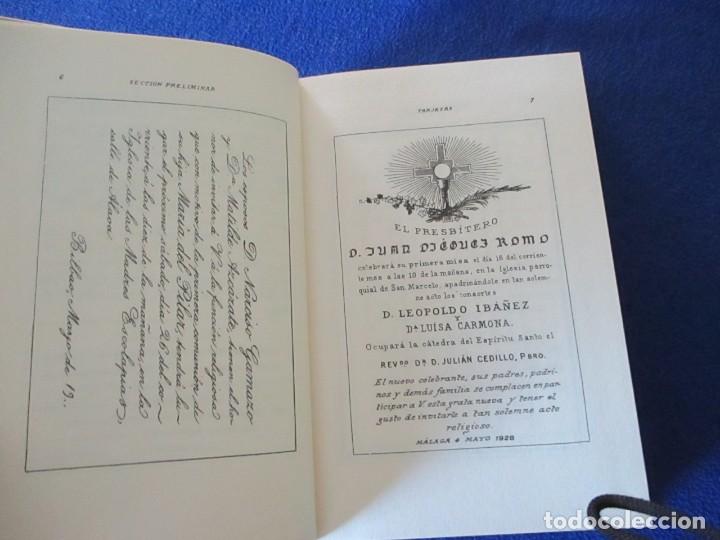 6
SECCION PRELIMINAR
Los esposos D. Narciso Gamazo
y D.ª Matilde Azcárate, tienen el ho-
nor de invitar á V. á la función religiosa
que con motivo de la primera comunión de
su hija María del Pilar, tendrá lu-
gar el próximo sábado, día 26 del co-
rriente, á las diez de la mañana, en la
Iglesia de las Madres Escolapias,
calle de Álava.
Bilbao, Mayo de 19..
TARJETAS
7
EL PRESBÍTERO
D. JUAN DIÉGUEZ ROMO
celebrará su primera misa el día 16 del corrien-
te mes a las 10 de la mañana, en la Iglesia parro-
quial de San Marcelo, apadrinándole en tan solem-
ne acto los consortes
D. LEOPOLDO IBÁÑEZ
Y
Dª LUISA CARMONA.
Ocupará la cátedra del Espíritu Santo el
REVDO. DR. D. JULIÁN CEDILLO, PBRO.
El nuevo celebrante, sus padres, padri-
nos y demás familia se complacen en par-
ticipar a V. esta grata nueva y tener el
gusto de invitarle a tan solemne acto
religioso.
MÁLAGA 4 MAYO 1928
todocoleccion.net